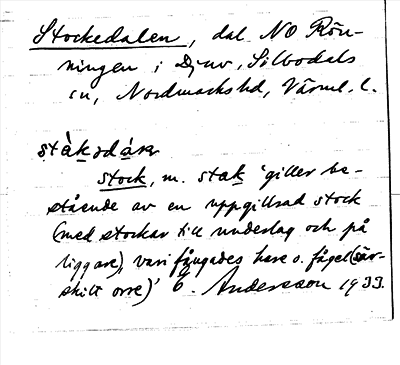 Stockedalen, dal NO Rön-
ningen i Djuv, Silbodals
sn, Nordmarks hd, Värml. l.
stàksdáɷr
stock, m. stak 'giller be-
stående av en uppgillrad stock
(med stockar till underlag och på
liggare), vari fångades hare o. fågel (sär-
skilt orre)' E. Andersson 1933.